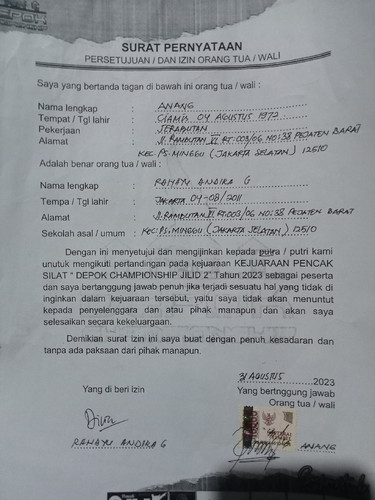 SURAT PERNYATAAN
PERSETUJUAN DAN IZIN ORANG TUA / WALI
Saya yang bertanda tagan di bawah ini orang tua / wali :
Nama lengkap : ANANG
Tempat / Tgl lahir : CIAMIS 04 AGUSTUS 1973
Pekerjaan : SERABUTAN
Alamat : Jl. RAMBUTAN VI RT.003/06 NO:38 PEJATEN BARAT
KEC. PS. MINGGU (JAKARTA SELATAN) 12510
Adalah benar orang tua / wali :
Nama lengkap : RAHAYU ANDIKA G
Tempa / Tgl lahir : JAKARTA 04-08-2011
Alamat : Jl. RAMBUTAN VI RT.003/06 NO 38 PEJATEN BARAT
Sekolah asal / umum : KEC. PS. MINGGU (JAKARTA SELATAN) 12510
Dengan ini menyetujui dan mengijinkan kepada putra / putri kami
unutuk mengikuti pertandingan pada kejuaraan KEJUARAAN PENCAK
SILAT " DEPOK CHAMPIONSHIP JILID 2" Tahun 2023 sebagai peserta
dan saya bertanggung jawab penuh jika terjadi sesuatu hal yang tidak di
inginkan dalam kejuaraan tersebut, yaitu saya tidak akan menuntut
kepada penyelenggara dan atau pihak manapun dan akan saya
selesaikan secara kekeluargaan.
Demikian surat izin ini saya buat dengan penuh kesadaran dan
tanpa ada paksaan dari pihak manapun.
31 AGUSTUS 2023
Yang di beri izin
Yang bertnggung jawab
Orang tua / wali
RAHAYU ANDIKA G
ANANG